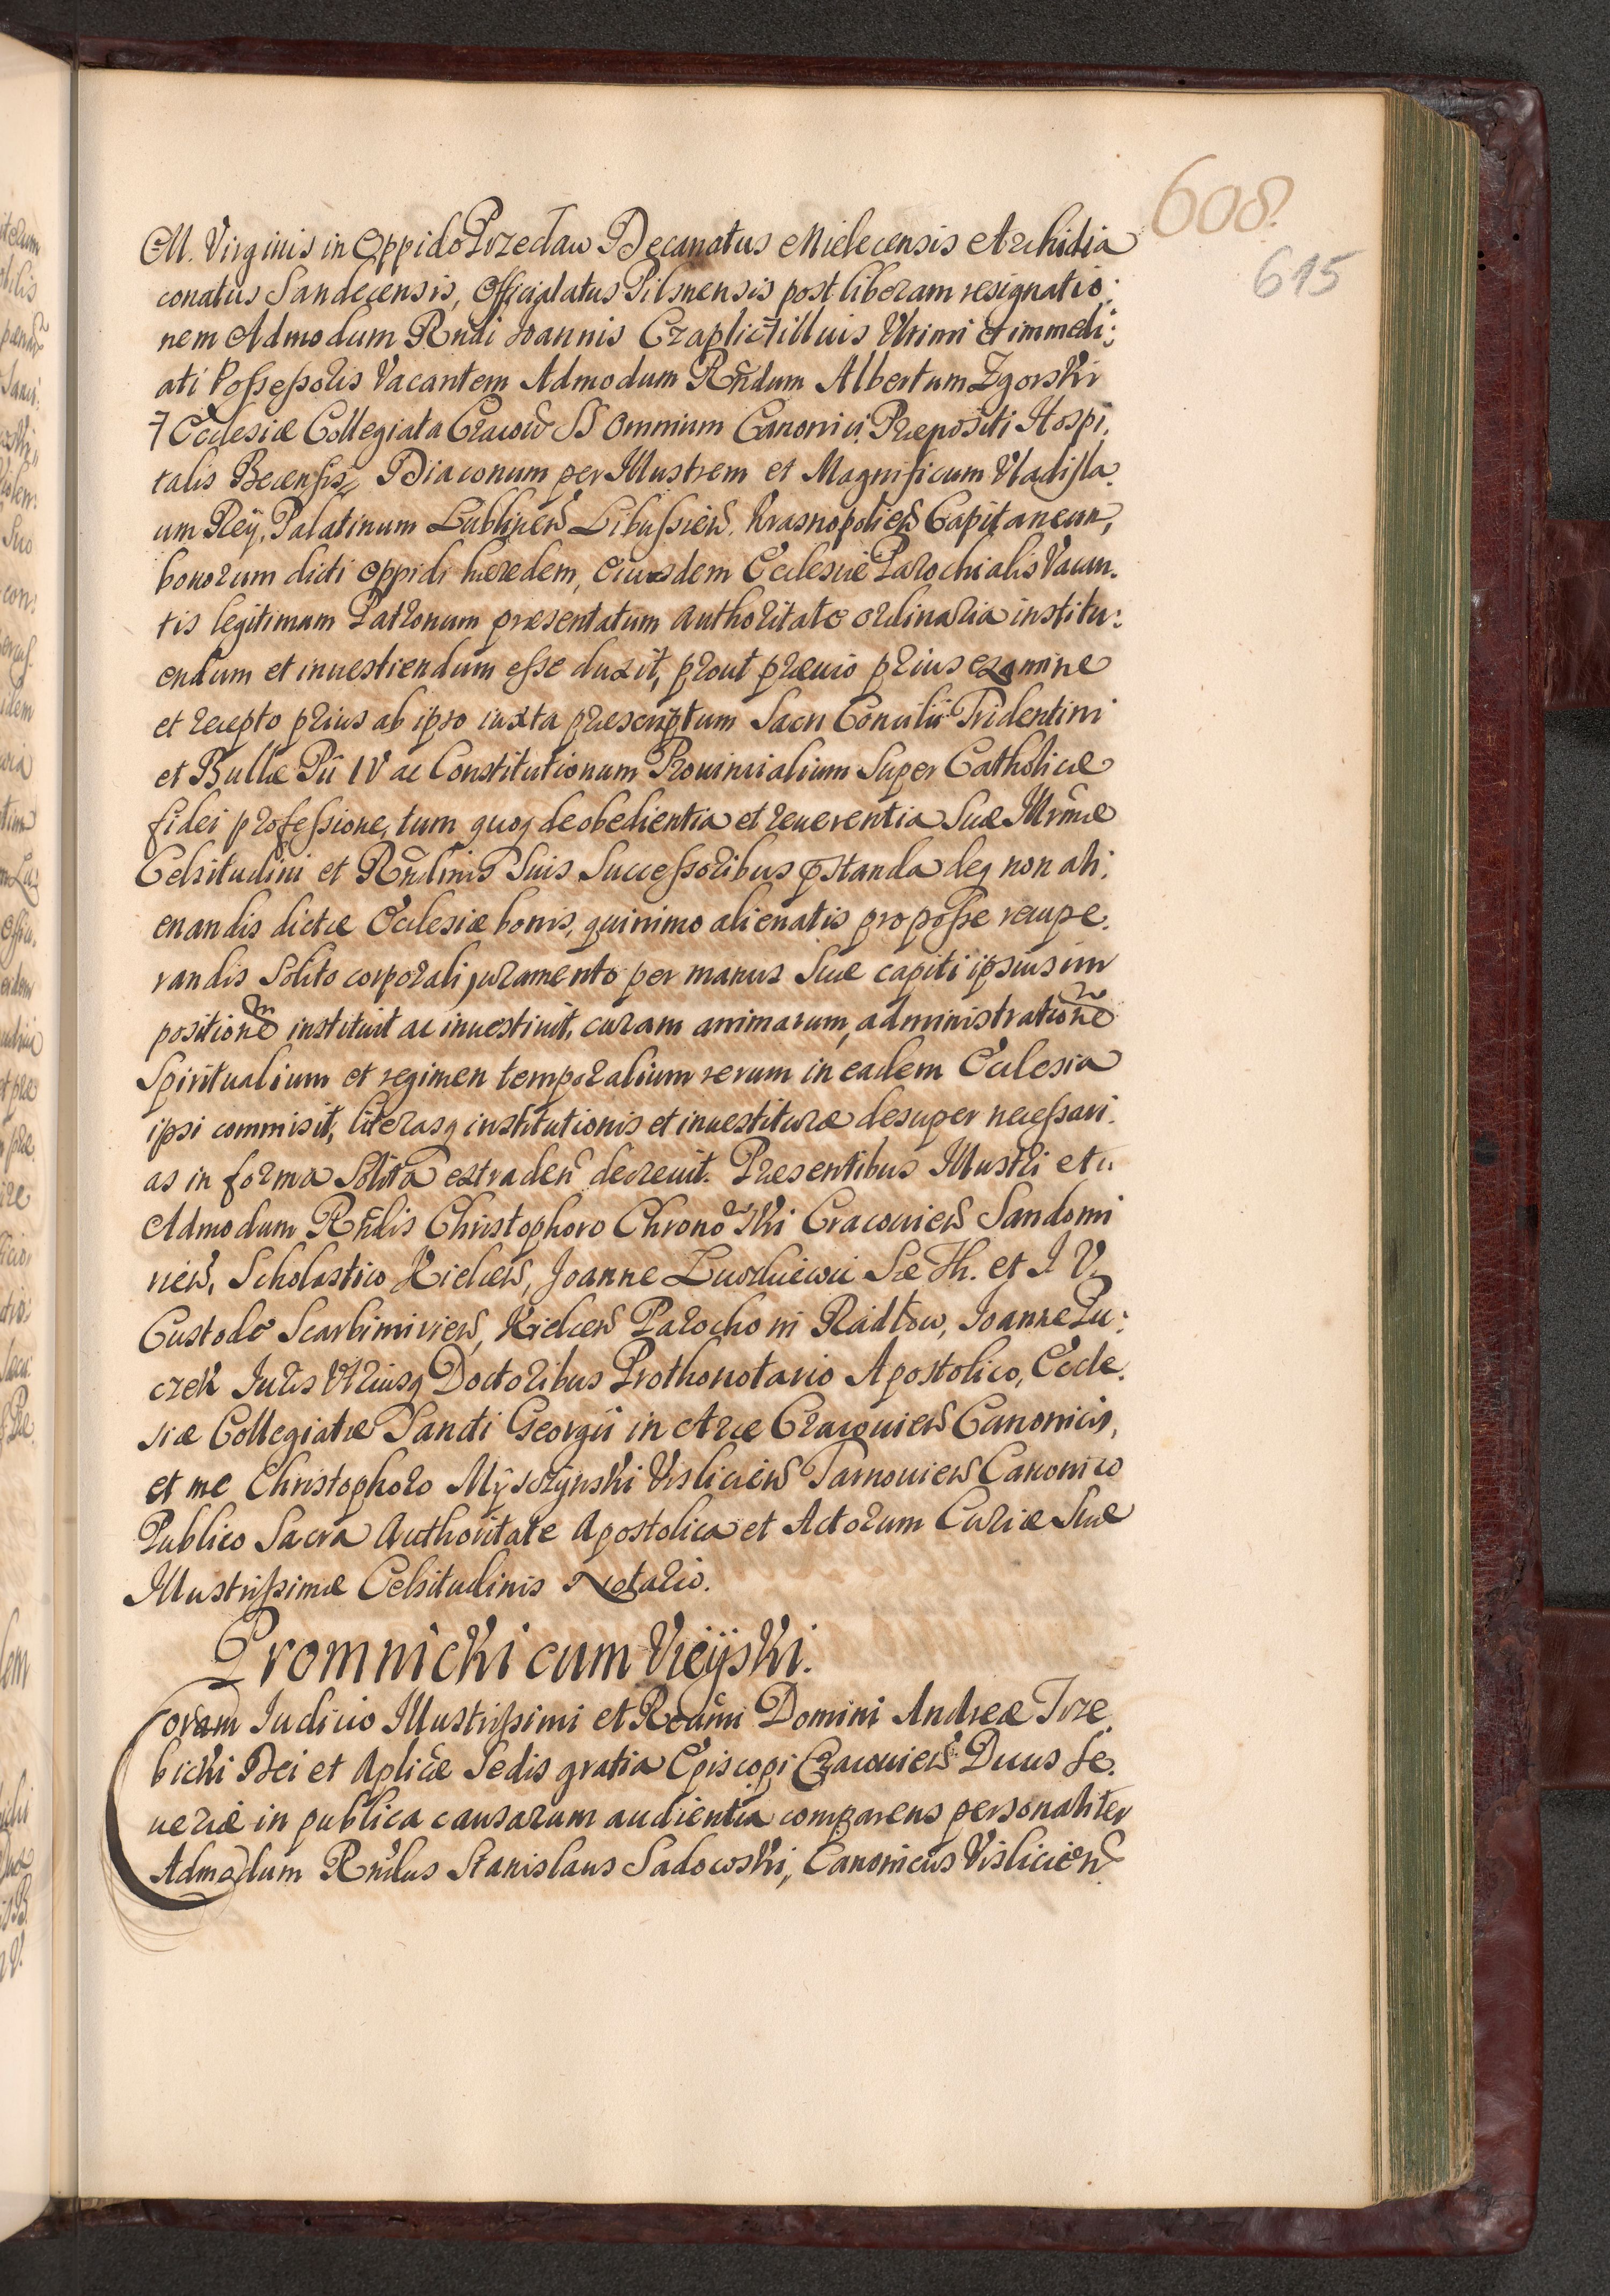 608.
615
M. Virginis in Oppido Przecław Decanatus Mielecensis Archidia
conatus Sandecensis, Officialatus Pilsnensis post liberam resignatio:
nem Admodum Rñdi Joannis Czaplic illius Ultimi et immedi:
ati Possessoris Vacantem Admodum Rñdum Albertum Zgorski
Ecclesiæ Collegiata Cracov SS Omnium Canonici, Præpositi Hospi.
talis Becensis, Diaconum per Illustrem et Magnificum Vladisla.
um Reÿ, Palatinum Lublinen Libussien. Krasnopolien Capitaneum,
bonorum dicti oppidi hæredem, eiusdem Ecclesiæ Parochialis Vacan.
tis legitimum Patronum præsentatum authoritate ordinaria institu:
endum et inuestiendum esse duxit, prout præuio prius examine
et recepto prius ab ipso iuxta præscriptum Sacri Concilii Tridentini
et Bullæ Pii IV ac Constitutionum Prouincialium Super Catholicæ
fidei professione, tum quoq de obedientia et reuerentia Suæ Illrmæ
Celsitudini et Rñdinis Suis Successoribus pstanda deq non ali:
enandis dictæ Ecclesiæ bonis, quinimo alienatis pro posse recupe.
randis Solito corporali juramento per manus Suæ capiti ipsius im
positionem instituit ac inuestiuit, curam animarum, administrationē
Spiritualium et regimen temporalium rerum in eadem Ecclesia
ipsi commisit, literasq institutionis et inuestituræ desuper necessari.
as in forma Solita extraden decreuit. Præsentibus Illustri et
Admodum Rñdis Christophoro Chronowski Cracouien Sandomi
rien, Scholastico Kielcen, Joanne Luordiewic Sæ Th. et J. V.
Custode Scarbimirien, Kielcen Parocho in Radłow, Joanne Pu:
czek Juris Utriusq Doctoribus Prothonotario Apostolico, Eccle.
siæ Collegiatæ Sancti Georgii in Arce Cracouien Canonicis,
et me Christophoro Mÿsczÿnski Vislicien Tarnouien Canonico
Publico Sacra Authoritate Apostolica et Actorum Curiæ Suæ
Illustrissimæ Celsitudinis Notario.
Promnicki cum Vieÿski.
Coram Iudicio Illustrissimi et Rdmi Domini Andreæ Trze
bicki Dei et Aplicæ Sedis gratia Episcopi Cracouien Ducis Se.
ueriæ in publica causarum audientia comparens personaliter
Admodum Rñdus Stanislaus Sadowski, Canonicus Vislicien